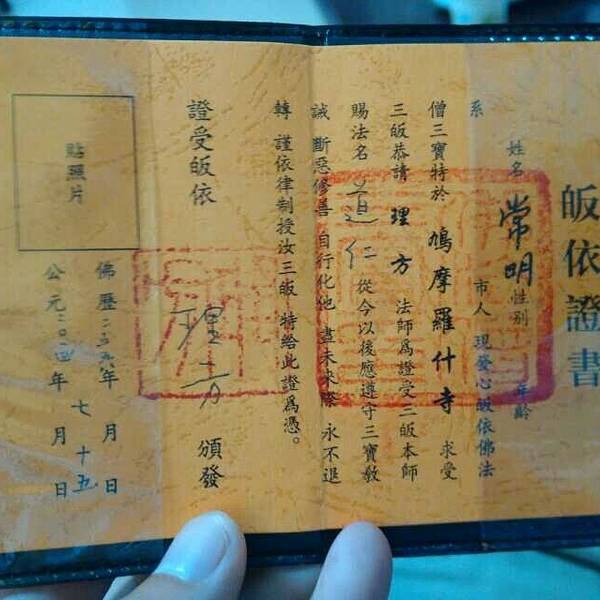 皈依證書
姓名 常明 性別 年齡
系 市人 現發心皈依佛法
僧三寶特於 鳩摩羅什寺 求受
三皈恭請 理方 法師爲證受三皈本師
賜法名 道仁 從今以後應遵守三寶教
誡 斷惡修善 自行化他 盡未來際 永不退
轉 謹依律制授汝三皈 特給此證爲憑。
證受皈依 理方 頒發
貼照片
佛歷 年 月 日
公元二〇一四年 七月十五日